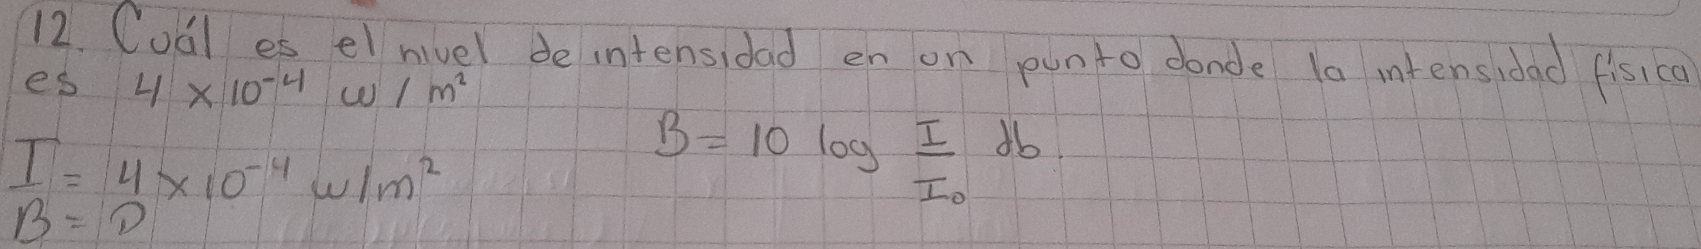 12. Cuál es el nivel de intensidad en un punto donde la intensidad física
es 4 x 10⁻⁴ w / m²
B = 10 log I/I₀ db.
I = 4 x 10⁻⁴ w/m²
B = D